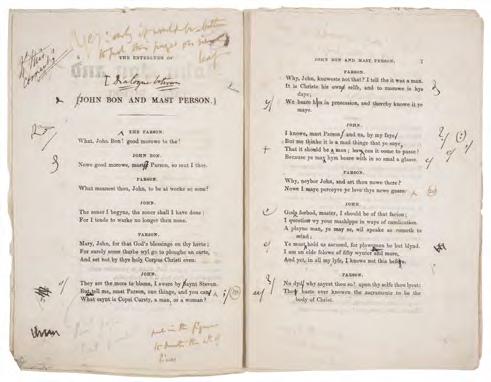 6 THE ENTERLUDE OF
[Dialogue between
[JOHN BON AND MAST PERSON.]
THE PARSON.
What, John Bon! good morowe to the!
JOHN BON.
Nowe good morowe, mast Parson, so mut I thee.
PARSON.
What meanest thou, John, to be at worke so sone?
JOHN.
The zoner I begyne, the zoner shall I have done:
For I tende to warke no longer then none.
PARSON.
Mary, John, for that God's blessinge on thy herte;
For surely some therbe wyl go to ploughe an carte,
And set not by thys holy Corpus Christi even.
JOHN.
They are the more to blame, I swere by saynt Steven.
But tell me, mast Parson, one thinge, and you can
What saynt is Copsi Cursty, a man, or a woman?
put in the figures
to denote the
lines
JOHN BON AND MAST PERSON. 7
PARSON.
Why, John, knoweste not that? I tell the it was a man.
It is Christe his owne selfe, and to morowe is hys
daye;
We beare hym in prosession, and therebye knowe it ye
maye.
JOHN.
I knowe, mast Parson and na, by my faye
But me thinke it is a mad thinge that ye saye,
That it should be a man; how can it come to passe?
Because ye may hym beare with in so smal a glasse.
PARSON.
Why, neybor John, and art thou nowe there?
Nowe I maye perceyve ye love thys newe geare.
JOHN.
Gods forbod, master, I should be of that facion;
I question wy your mashippe in waye of cumlication.
A playne man, ye may se, wil speake as cometh to
mind;
Ye must hold us ascused, for plowmen be but blynd.
I am an elde felowe of fifty wynter and more,
And yet, in all my lyfe, I knewe not this before.
PARSON.
No dyd why sayest thou so? upon thy selfe thou lyest:
Thou haste ever knowen the sacramente to be the
body of Christ.